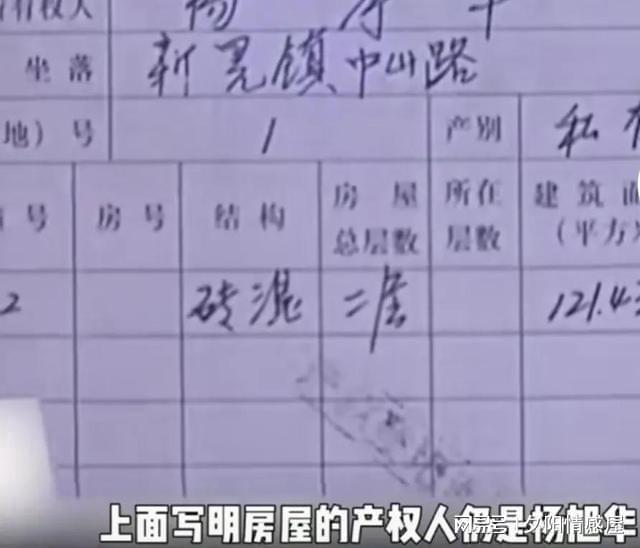 有权人
坐落 新晃镇中山路
地）号 1 产别 私
号 房号 结构 房屋总层数 所在层数 建筑面
（平方
2 砖混 二层 121.4
上面写明房屋的产权人仍是杨旭华
网易号 | 夕阳情感屋